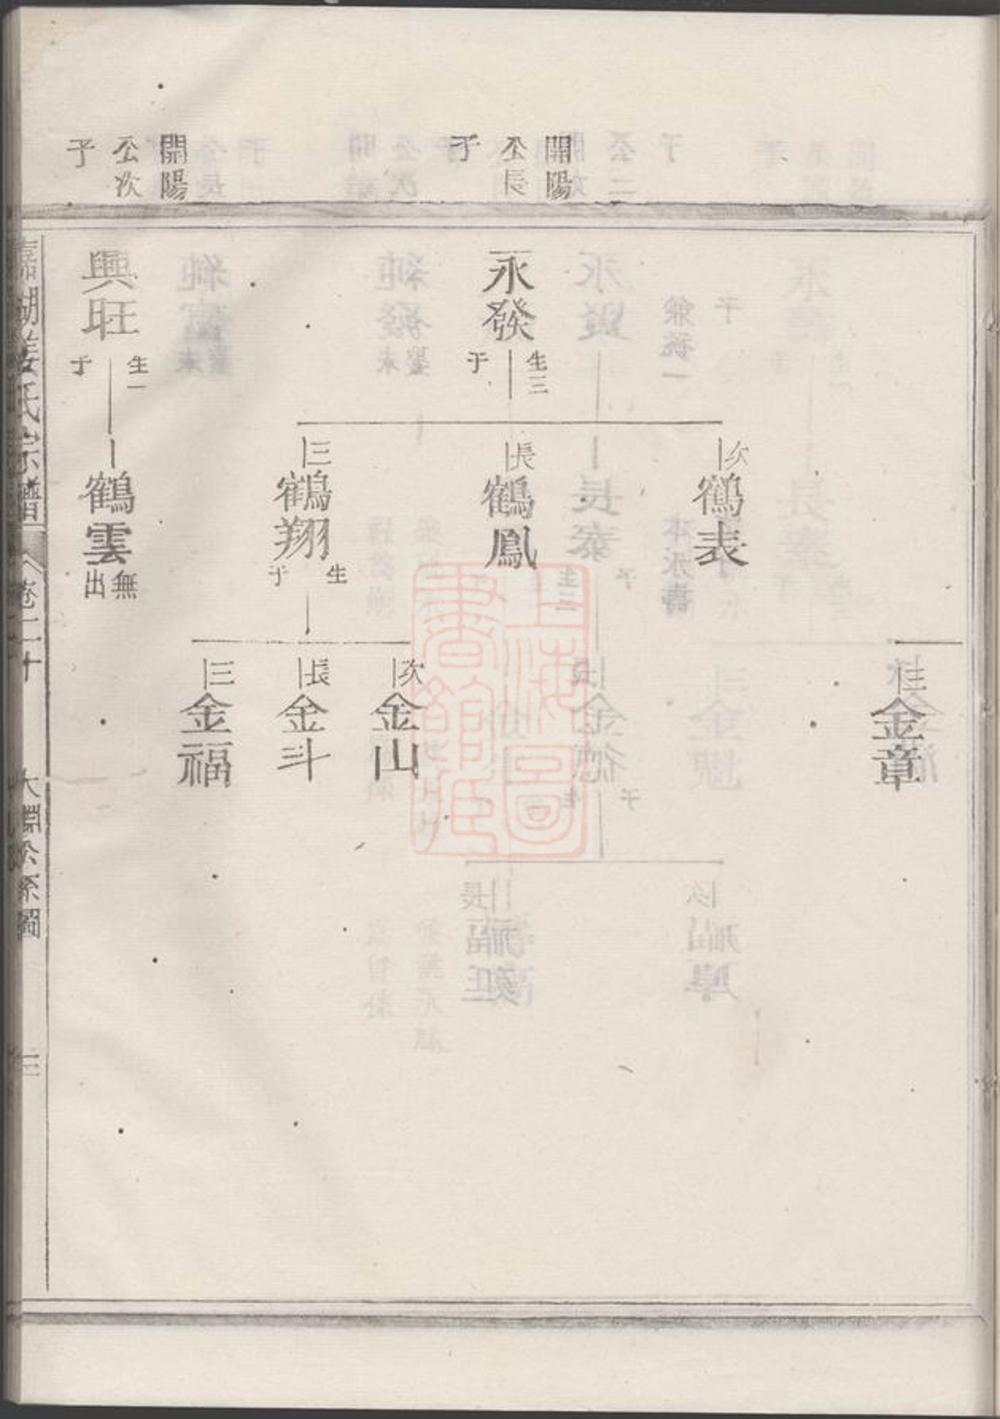 開陽
公長
子
開陽
公次
子
永發
生三
子
次
鶴表
長
鶴鳳
三
鶴翔
生
子
桂
金章
次
金山
長
金斗
三
金福
興旺
生一
子
鶴雲
無
出
姜氏宗譜
卷二十
大淵公系圖
三
上海圖書館藏